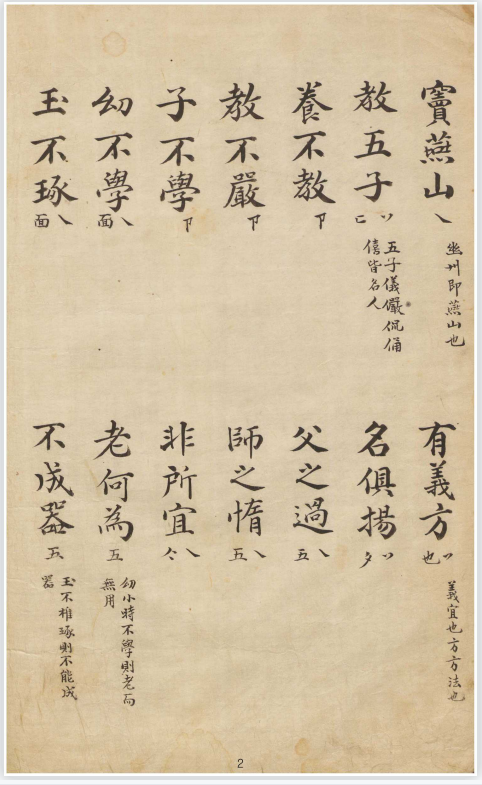 竇燕山丶 幽州即燕山也
有義方ソ也 義宜也方方法也
教五子ソ㔾 五子儀儼侃偁僖皆名人
名俱揚ソ夕
養不教卩
父之過丶五
教不嚴卩
師之惰丶五
子不學卩
非所宜丶仒
幼不學丶面
老何為五 幼小時不學則老而無用
玉不琢丶面
不成器五 玉不椎琢則不能成器
2